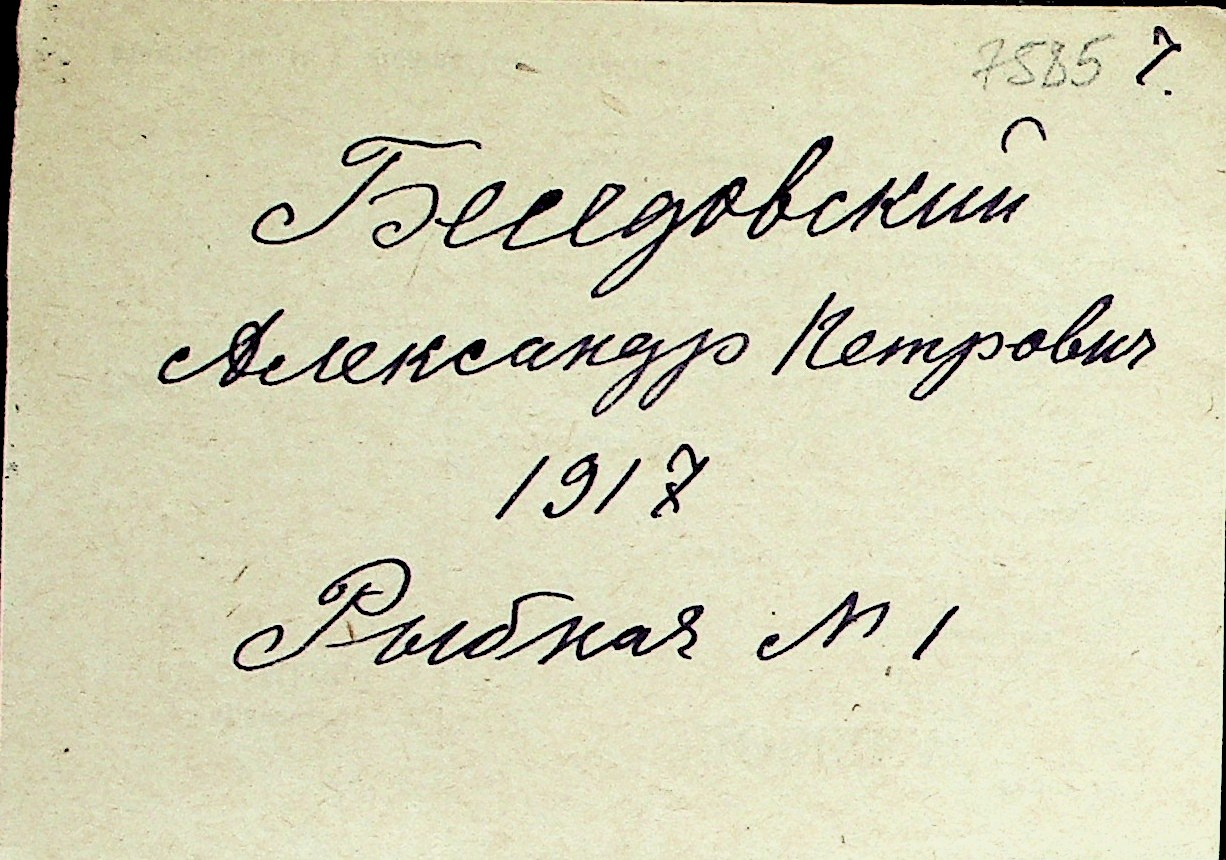 7585 7.
Беседовский
Александр Петрович
1917
Рыбная № 1